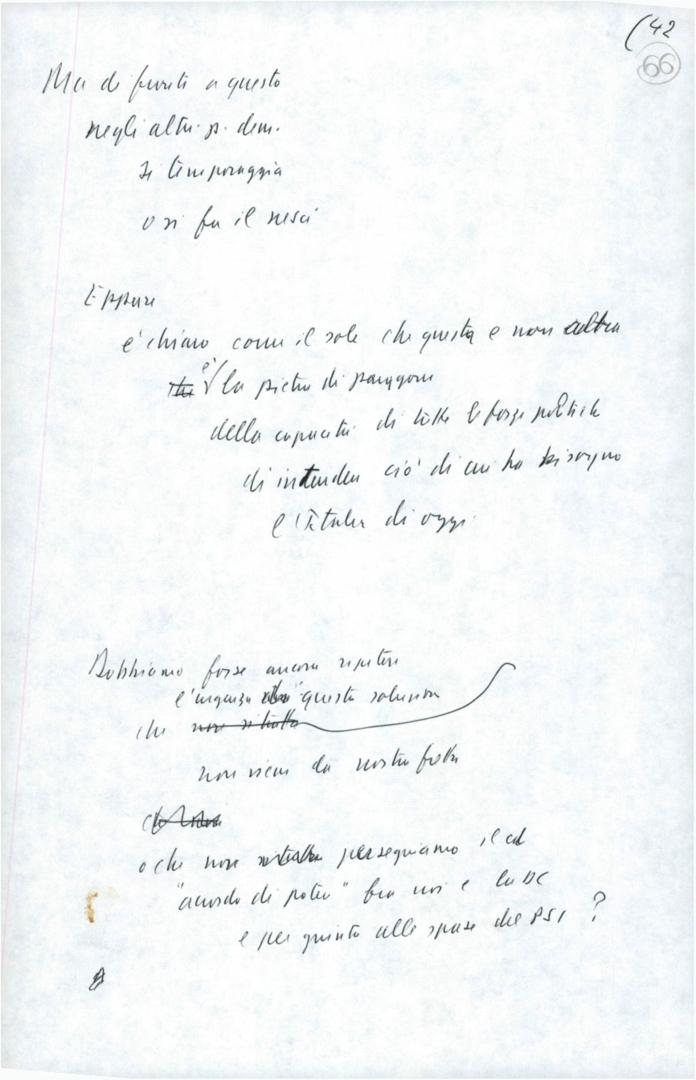 (42
66
Ma di fronti a questo
negli altri p. dem.
si temporeggia
o si fa il nesci
Eppure
è chiaro come il sole che questa e non altra
è la pietra di paragone
della capacità di tutte le forze politiche
di intendere ciò di cui ha bisogno
l'Italia di oggi.
Dobbiamo forse ancora ripetere
l'urgenza di questa soluzione
che
non viene da nostra fretta
o che non perseguiamo il cd
"accordo di potere" fra noi e la DC
e per giunta alle spese del PSI ?